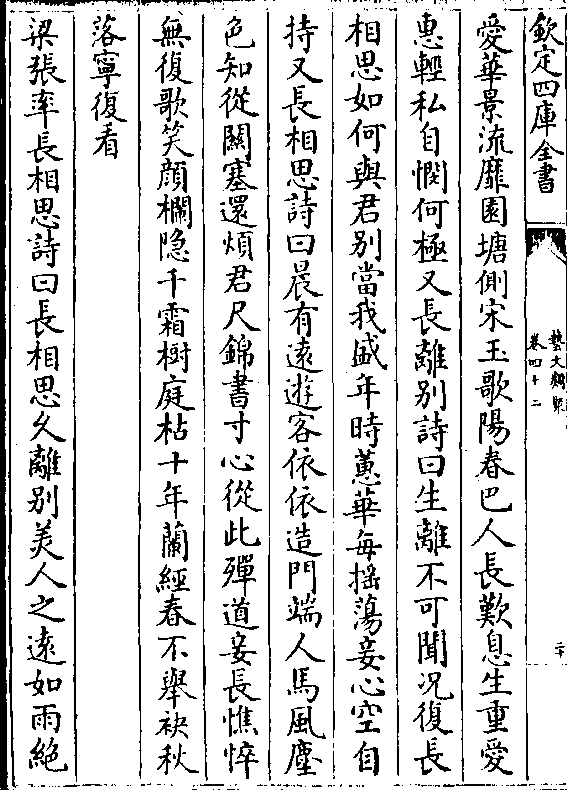 欽定四庫全書
藝文類聚
卷四十二
二十
愛華景流靡園塘側宋玉歌陽春巴人長歎息生重愛
惠輕私自憫何極又長離別詩曰生離不可聞況復長
相思如何與君别當我盛年時蕙華每揺蕩妾心空自
持又長相思詩曰晨有遠遊客依依造門端人馬風塵
色知從闗塞還煩君尺錦書寸心從此殫道妾長憔悴
無復歌笑顔欄隐千霜樹庭枯十年蘭經春不舉袂秋
落寧復看
梁張率長相思詩曰長相思久離别美人之遠如雨絶